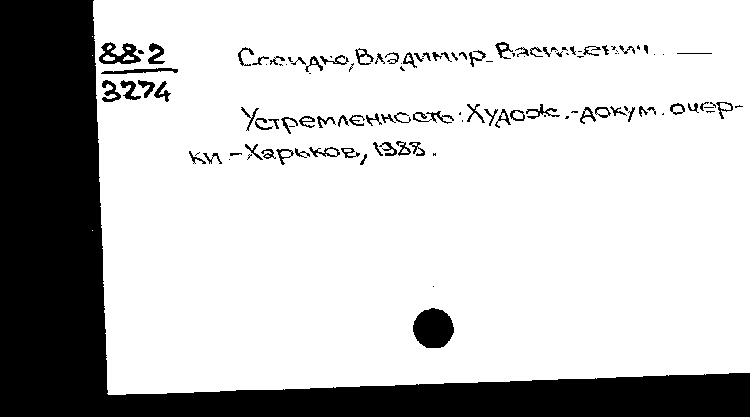 88-2 Сосидко, Владимир Васильевич —
3274
Устремленность: Худож.-докум. очер-
ки - Харьков, 1988.